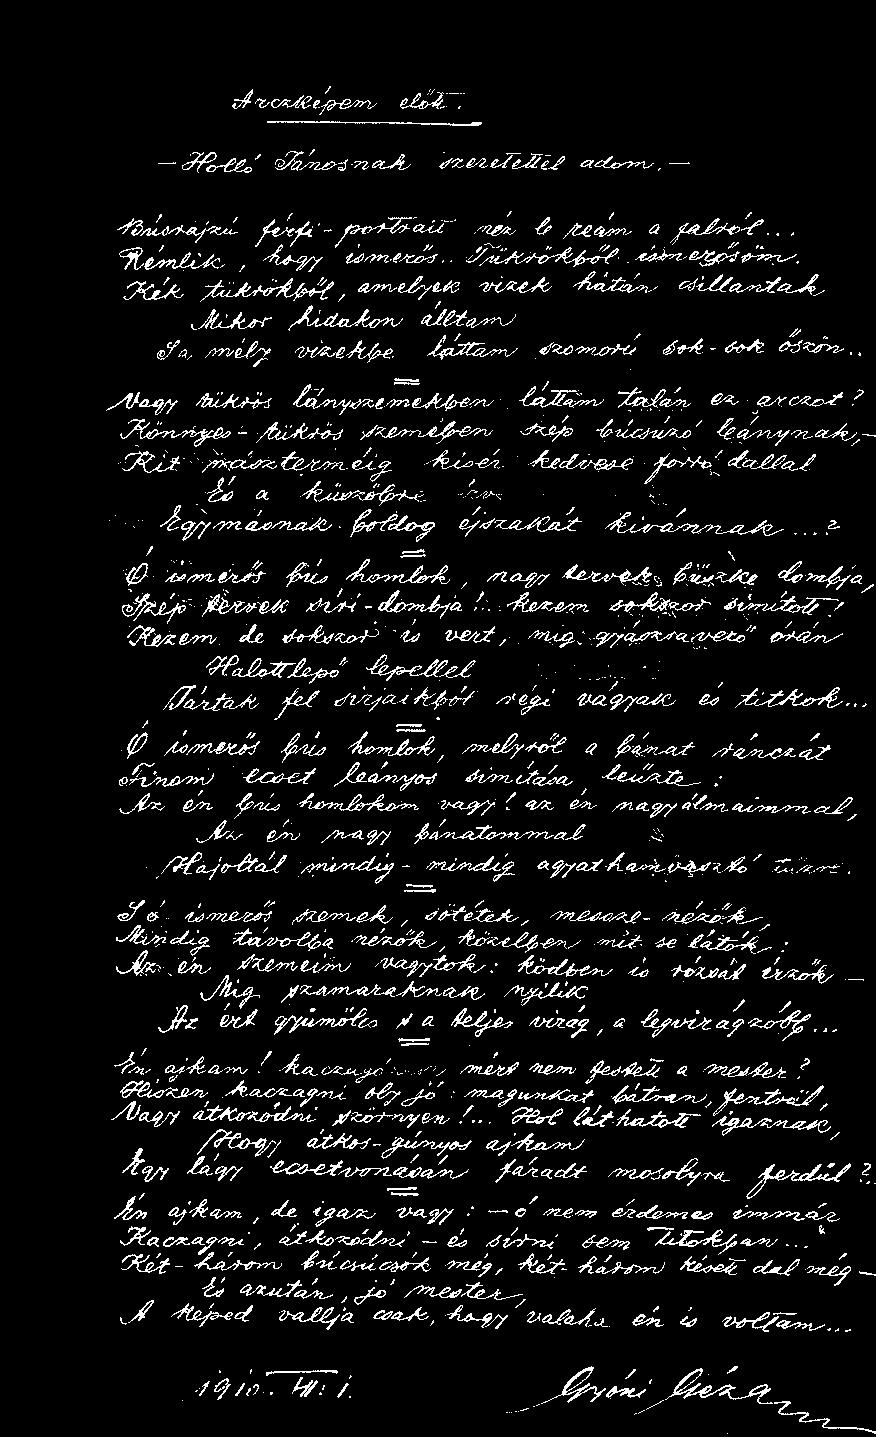 Arczképem előtt.
— Holló Jánosnak szeretettel adom. —
Búsrajzú férfi-portrait néz le reám a falról...
Rémlik, hogy ismerős.. Tükrökből ismerősöm.
Kék tükrökből, amelyek vizek hátán csillantak
Mikor hidakon álltam
S a mély vizekbe láttam szomorú sok-sok őszön..
Vagy tükrös lányszemekben láttam talán ez arczot?
Könnyes-tükrös szemében szép búcsúzó leánynak,—
Kit mászterméig kisér kedvese forró dallal
És a küszöbre
Egymásnak boldog éjszakát kivánnak...?
Ó ismerős bús homlok, nagy tervek büszke dombja,
Szép tervek síri-dombja!.. kezem sokszor simított!
Kezem de sokszor is vert, mig gyászravető órán
Halottlepő lepellel
Jártak fel sirjaikból régi vágyak és titkok...
Ó ismerős bús homlok, melyről a bánat ránczát
Finom ecset leányos simitása leüzte:
Az én bús homlokom vagy! az én nagy álmaimmal,
Az én nagy bánatommal
Hajoltál mindig-mindig agyathamvasztó tüzre.
S ó ismerős szemek, sötétek, messze-nézők,
Mindig távolba nézők, közelben mit se látók:
Az én szemeim vagytok: ködben is rózsát érzők —
Mig szamaraknak nyilik
Az ért gyümölcs s a teljes virág, a legvirágzóbb...
Én ajkam! kaczagó mért nem festett a mester?
Hiszen kaczagni oly jó: magunkat bátran, fentről,
Vagy átkozódni szörnyen!... Hol láthatott igaznak,
Hogy átkos-gúnyos ajkam
Egy lágy ecsetvonásán fáradt mosolyra ferdül?
Én ajkam, de igaz vagy: — ó nem érdemes immár
Kaczagni, átkozódni — és sírni sem titokban..."
Két-három búcsúcsók még, két-három késett dal még —
És azután, jó mester,
A képed vallja csak, hogy valaha én is voltam...
1910. VII. 1.
Gyóni Géza